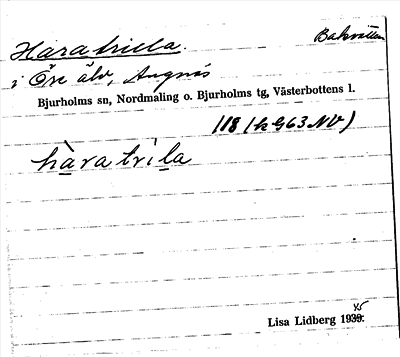 Haratrilla. Bakvatten
i Öre älv, Angnäs
Bjurholms sn, Nordmaling o. Bjurholms tg, Västerbottens l.
118 (k G63 NV)
hàratrìla
45
Lisa Lidberg 1939.